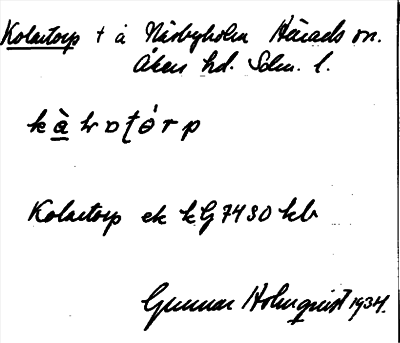 Kolartorp t å Näsbyholm Härads sn.
Åkers hd. Sdm. l.
k à l r o t ó r p
Kolartorp ek k G 7430 kb
Gunnar Holmquist 1934.